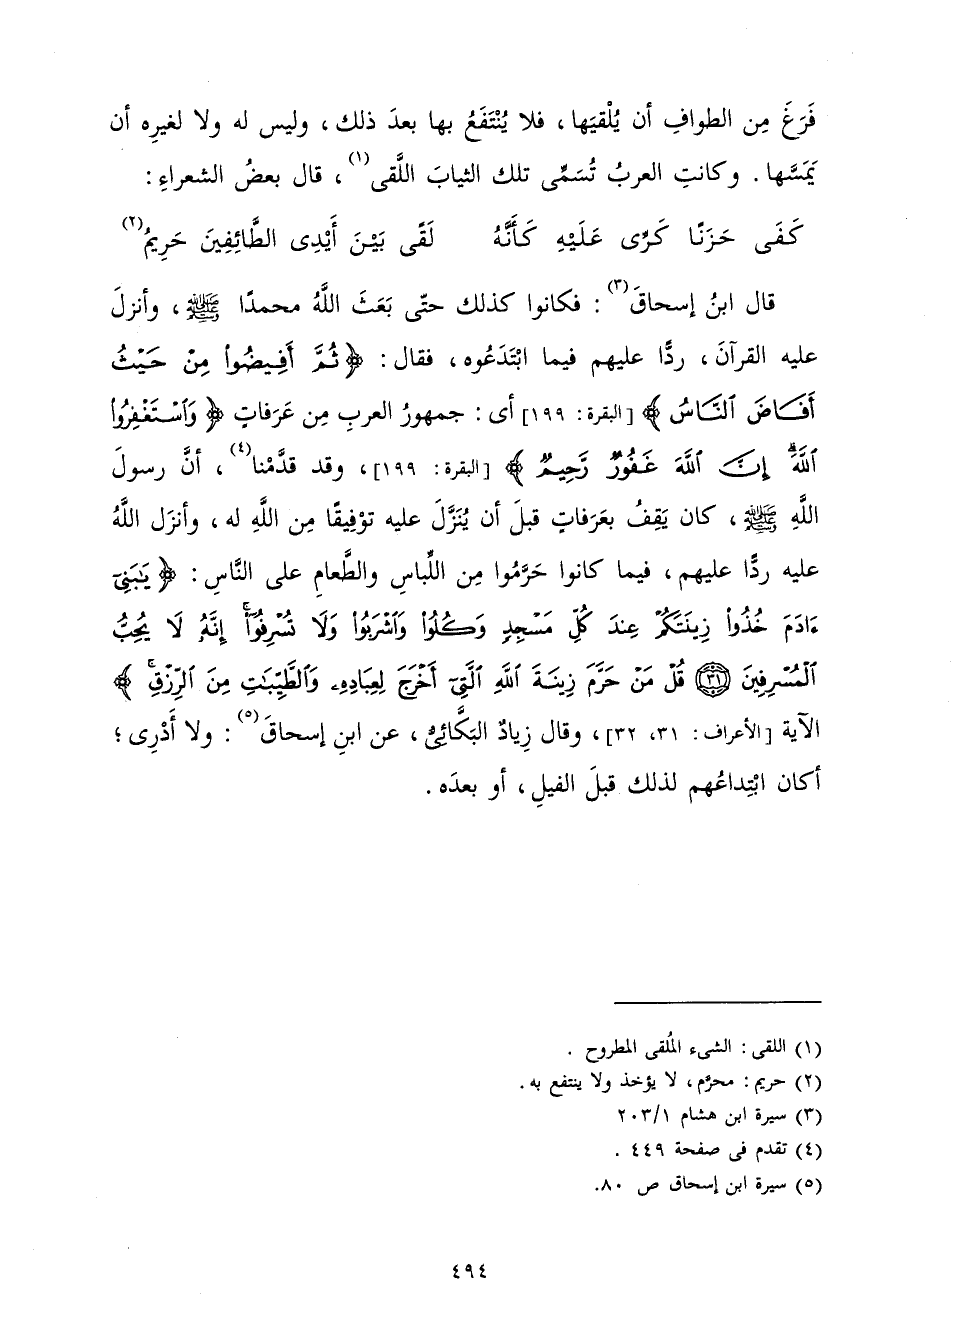 فَرَغَ مِن الطوافِ أن يُلْقيَها، فلا يُنْتَفَعُ بها بعدَ ذلك، وليس له ولا لغيرِه أن
يَمَسَّها. وكانتِ العربُ تُسَمِّى تلك الثيابَ اللَّقى(١)، قال بعضُ الشعراءِ:
كَفَى حَزَنًا كَرِّى عَلَيْهِ كَأَنَّهُ لَقًى بَيْنَ أَيْدِى الطَّائِفِينَ حَرِيمُ(٢)
قال ابنُ إسحاقَ(٣): فكانوا كذلك حتّى بَعَثَ اللَّهُ محمدًا ﷺ، وأنزلَ
عليه القرآنَ، ردًّا عليهم فيما ابْتَدَعُوه، فقال: ﴿ثُمَّ أَفِيضُواْ مِنْ حَيْثُ
أَفَاضَ ٱلنَّاسُ﴾ [البقرة: ١٩٩] أى: جمهورُ العربِ مِن عَرَفاتٍ ﴿وَٱسْتَغْفِرُواْ
ٱللَّهَۚ إِنَّ ٱللَّهَ غَفُورٌ رَّحِيمٌ﴾ [البقرة: ١٩٩]، وقد قدَّمْنا(٤)، أنَّ رسولَ
اللَّهِ ﷺ، كان يَقِفُ بعَرفاتٍ قبلَ أن يُنَزَّلَ عليه توْفِيقًا مِن اللَّهِ له، وأنزَل اللَّهُ
عليه ردًّا عليهم، فيما كانوا حَرَّمُوا مِن اللِّباسِ والطَّعامِ على النَّاسِ: ﴿يَٰبَنِىٓ
ءَادَمَ خُذُواْ زِينَتَكُمْ عِندَ كُلِّ مَسْجِدٍ وَكُلُواْ وَٱشْرَبُواْ وَلَا تُسْرِفُوٓاْۚ إِنَّهُۥ لَا يُحِبُّ
ٱلْمُسْرِفِينَ ٣١ قُلْ مَنْ حَرَّمَ زِينَةَ ٱللَّهِ ٱلَّتِىٓ أَخْرَجَ لِعِبَادِهِۦ وَٱلطَّيِّبَٰتِ مِنَ ٱلرِّزْقِۚ﴾
الآية [الأعراف: ٣١، ٣٢]، وقال زِيادٌ البَكَّائِىُّ، عن ابنِ إسحاقَ(٥): ولا أَدْرِى؛
أكان ابْتِداعُهم لذلك قبلَ الفيلِ، أو بعدَه.
(١) اللقى: الشىء المُلقى المطروح.
(٢) حريم: محرَّم، لا يؤخذ ولا ينتفع به.
(٣) سيرة ابن هشام ٢٠٣/١
(٤) تقدم فى صفحة ٤٤٩.
(٥) سيرة ابن إسحاق ص ٨٠.
٤٩٤